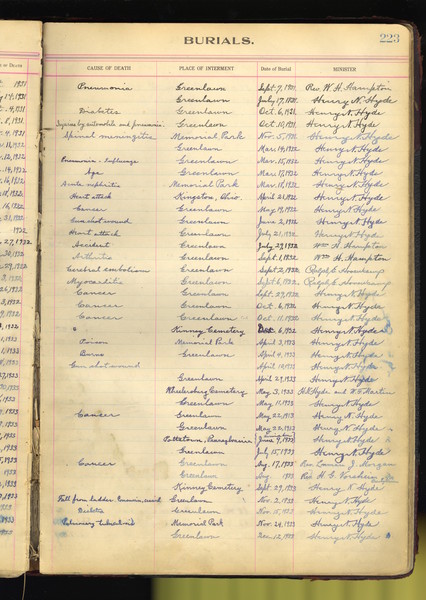 BURIALS.
223
CAUSE OF DEATH PLACE OF INTERMENT Date of Burial MINISTER
Pneumonia Greenlawn Sept. 7, 1931 Rev. W. H. Hampton
Greenlawn July 17, 1931. Henry N. Hyde
Diabetes Greenlawn Oct. 6, 1931 Henry N. Hyde
Injuries by automobile and pneumonia Greenlawn Oct. 10, 1931. Henry N. Hyde
Spinal meningitis Memorial Park Nov. 5, 1931 Henry N. Hyde
Greenlawn Mar. 14, 1932 Henry N. Hyde
Pneumonia - Influenza Greenlawn Mar. 15, 1932 Henry N. Hyde
Age Greenlawn Mar. 17, 1932 Henry N. Hyde
Acute nephritis Memorial Park Mar. 18, 1932 Henry N. Hyde
Heart attack Kingston, Ohio. April 21, 1932 Henry N. Hyde
Cancer Greenlawn May 19, 1932 Henry N. Hyde
Gun shot wound Greenlawn June 2, 1932 Henry N. Hyde
Heart attack Greenlawn July 21, 1932 Henry N. Hyde
Accident Greenlawn July 27, 1932 Wm H. Hampton
Arthritis Greenlawn Sept. 1, 1932 Wm H. Hampton
Cerebral embolism Greenlawn Sept. 2, 1932 Ralph
Myocarditis Greenlawn Sept. 6, 1932 Ralph
Cancer Greenlawn Sept. 27, 1932 Henry N. Hyde
Cancer Greenlawn Oct. 6, 1932 Henry N. Hyde
Cancer Greenlawn Oct. 11, 1932 Henry N. Hyde
" Kinney Cemetery Dec. 6, 1932 Henry N. Hyde
Poison Memorial Park April 3, 1933 Henry N. Hyde
Burns Greenlawn April 1933 Henry N. Hyde
Gun shot wound April 18, 1933 Henry N. Hyde
Greenlawn April 27, 1933 Henry N. Hyde
Wheelersburg Cemetery May 3, 1933 H.N. Hyde and
Greenlawn May 11, 1933 Henry N. Hyde
Cancer Greenlawn May 22, 1933 Henry N. Hyde
Greenlawn May 26, 1933 Henry N. Hyde
Pottstown, Pennsylvania June 9, 1933 Henry N. Hyde
Greenlawn July 15, 1933 Henry N. Hyde
Cancer Greenlawn Aug. 17, 1933 Rev. J. Morgan
Greenlawn Aug. 1933 Rev. H. G.
Kinney Cemetery Sept. 29, 1933 Henry N. Hyde
Fall from ladder. Greenlawn Nov. 2, 1933 Henry N. Hyde
Diabetes Greenlawn Nov. 15, 1933 Henry N. Hyde
Pulmonary tuberculosis Memorial Park Nov. 24, 1933 Henry N. Hyde
Greenlawn Dec. 12, 1933 Henry N. Hyde